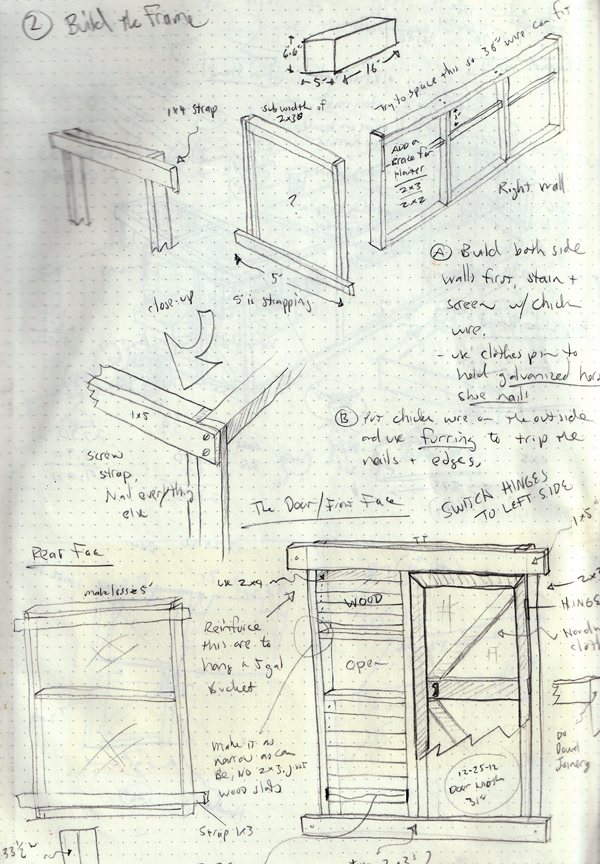 ② Build the Frame
6.6"
5'
16'
Try to space this so 36" wire can fit
1x4 strap
sub width of
2x3s
?
ADD a
Brace for
Planter
2x3
2x2
Right wall
5'
5' is strapping
Ⓐ Build both side
walls first, stain +
screen w/ chick
wire.
- use clothes pin to
hold galvanized hors
shoe nails
close-up
1x5
screw
strap,
Nail everything
else
Ⓑ Put chick wire on the outside
and use furring to trip the
nails + edges,
SWITCH HINGES
TO LEFT SIDE
The Door/Front Face
1x5"
Rear Face
make 5'
use 2x4
WOOD
2x3
HINGS
Reinforce
this are to
hang a 5 gal
Bucket
open
Make it as
narrow as can
Be, No 2x3, just
wood slats
12-25-12
Door width
31"
Do
Dowel
Joinery
Strap 1x3
33½"